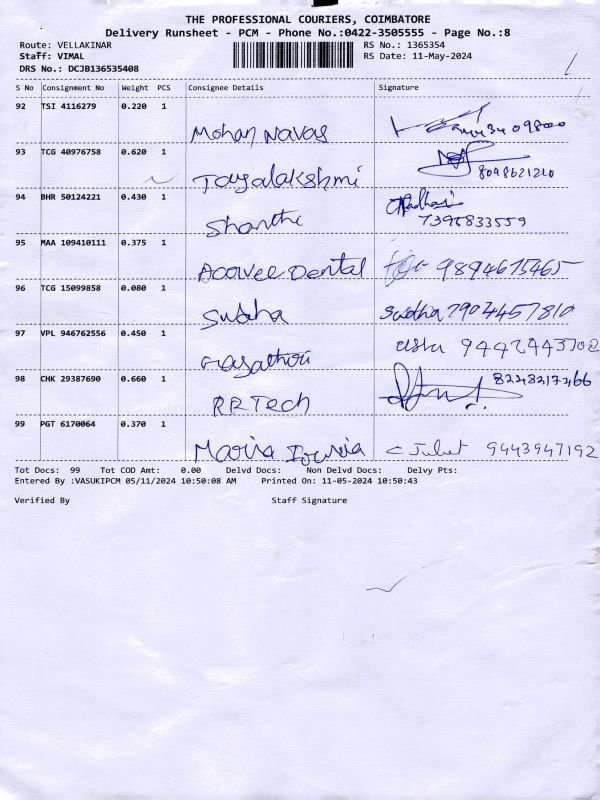 THE PROFESSIONAL COURIERS, COIMBATORE
Delivery Runsheet - PCM - Phone No.:0422-3505555 - Page No.:8
Route: VELLAKINAR RS No.: 1365354
Staff: VIMAL RS Date: 11-May-2024
DRS No.: DCJB136535408
S No Consignment No Weight PCS Consignee Details Signature
92 TSI 4116279 0.220 1 Mohan Navas
93 TCG 40976758 0.620 1 Jayalakshmi 8098621210
94 BHR 50124221 0.430 1 Shanthi 7395833559
95 MAA 109410111 0.375 1 Dental 9894675465
96 TCG 15099858 0.080 1 Subha Sudha 7904457810
97 VPL 946762556 0.450 1 Usha
98 CHK 29387690 0.660 1 RR Tech
99 PGT 6170064 0.370 1 Maria 9443947192
Tot Docs: 99 Tot COD Amt: 0.00 Delvd Docs: Non Delvd Docs: Delvy Pts:
Entered By :VASUKIPCM 05/11/2024 10:50:08 AM Printed On: 11-05-2024 10:50:43
Verified By Staff Signature